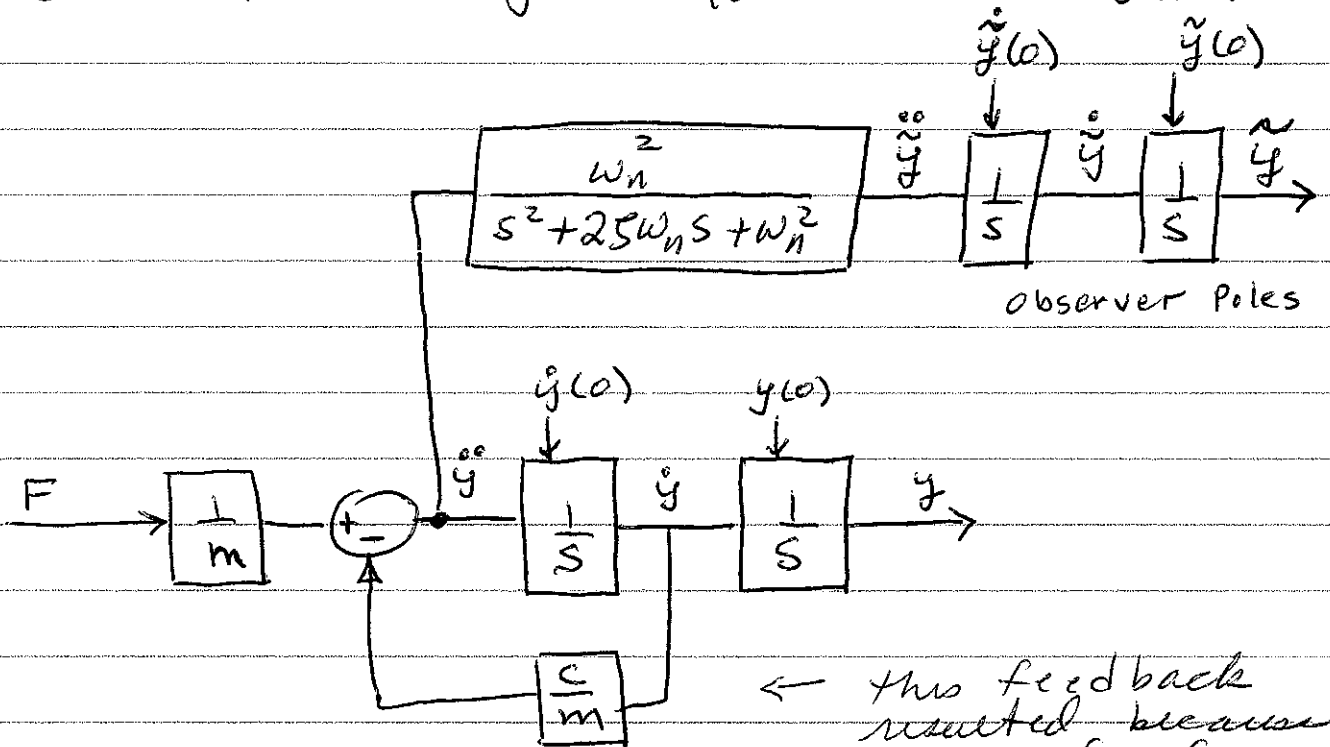 ỹ̇(0) ỹ(0)
ωn²
s²+2ζωns+ωn²
ỹ̈ 1/s ỹ̇ 1/s ỹ
observer Poles
ẏ(0) y(0)
F 1/m + − ÿ 1/s ẏ 1/s y
c/m
← this feedback
resulted because